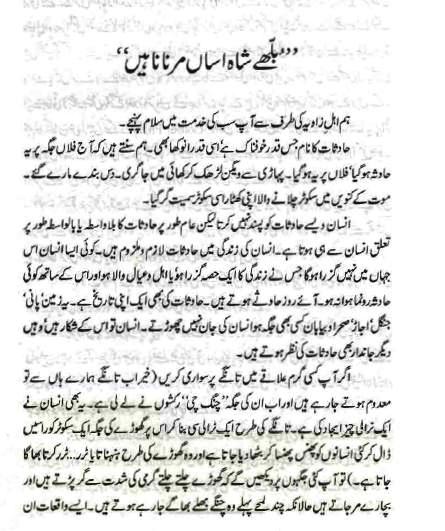 ’’بلّھے شاہ اساں مرنا ناہیں‘‘
ہم اہلِ زاویہ کی طرف سے آپ سب کی خدمت میں سلام پہنچے۔
حادثات کا نام جس قدر خوفناک ہے‘ اسی قدر انوکھا بھی۔ ہم سنتے ہیں کہ آج فلاں جگہ پر یہ
حادثہ ہو گیا‘ فلاں پر یہ ہو گیا۔ پہاڑی سے ویگن لڑھک کر کھائی میں جا گری۔ دس بندے مارے گئے۔
موت کے کنویں میں سکوٹر چلانے والا اپنی کھٹارا سی سکوٹر سمیت گر گیا۔
انسان ویسے حادثات کو پسند نہیں کرتا لیکن عام طور پر حادثات کا بلاواسطہ یا بالواسطہ طور پر
تعلق انسان سے ہی ہوتا ہے۔ انسان کی زندگی میں حادثات لازم و ملزوم ہیں۔ کوئی ایسا انسان اس
جہاں میں نہیں گزرا ہوگا جس نے زندگی کا ایک حصہ گزرا ہو یا اہل و عیال والا ہو اور اس کے ساتھ کوئی
حادثہ رونما ہوا نہ ہو۔ آئے روز حادثے ہوتے ہیں۔ حادثات کی بھی ایک اپنی تاریخ ہے۔ یہ زمین‘ پانی‘
جنگل‘ اجاڑ‘ صحرا و بیابان کسی بھی جگہ ہو انسان کی جان نہیں چھوڑتے۔ انسان تو اس کے شکار ہیں‘ وہیں
دیگر جاندار بھی حادثات کی نظر ہوتے ہیں۔
اگر آپ کسی گرم علاقے میں تانگے پر سواری کریں (خیر اب تانگے ہمارے ہاں سے تو
معدوم ہوتے جا رہے ہیں اور اب ان کی جگہ ’’چنگ چی‘‘ رکشوں نے لے لی ہے۔ یہ بھی انسان نے
ایک نرالی چیز ایجاد کی ہے۔ تانگے کی طرح ایک ٹرالی سی بنا کر اس پر گھوڑے کی جگہ ایک سکوٹر کو راسیں
ڈال کر کئی انسانوں کو پھنس پھنسا کر بٹھا دیا جاتا ہے اور وہ گھوڑے کی طرح ہنہناتا یا ٹرر۔۔ ٹرر کرتا بھاگا
جاتا ہے۔) تو آپ کئی جگہوں پر دیکھیں گے کہ گھوڑے چلتے چلتے گرمی کی شدت سے گر پڑتے ہیں اور
بچارے مر جاتے ہیں حالانکہ چند لمحے پہلے وہ چنگے بھلے بھاگے جا رہے ہوتے ہیں۔ ایسے واقعات ان